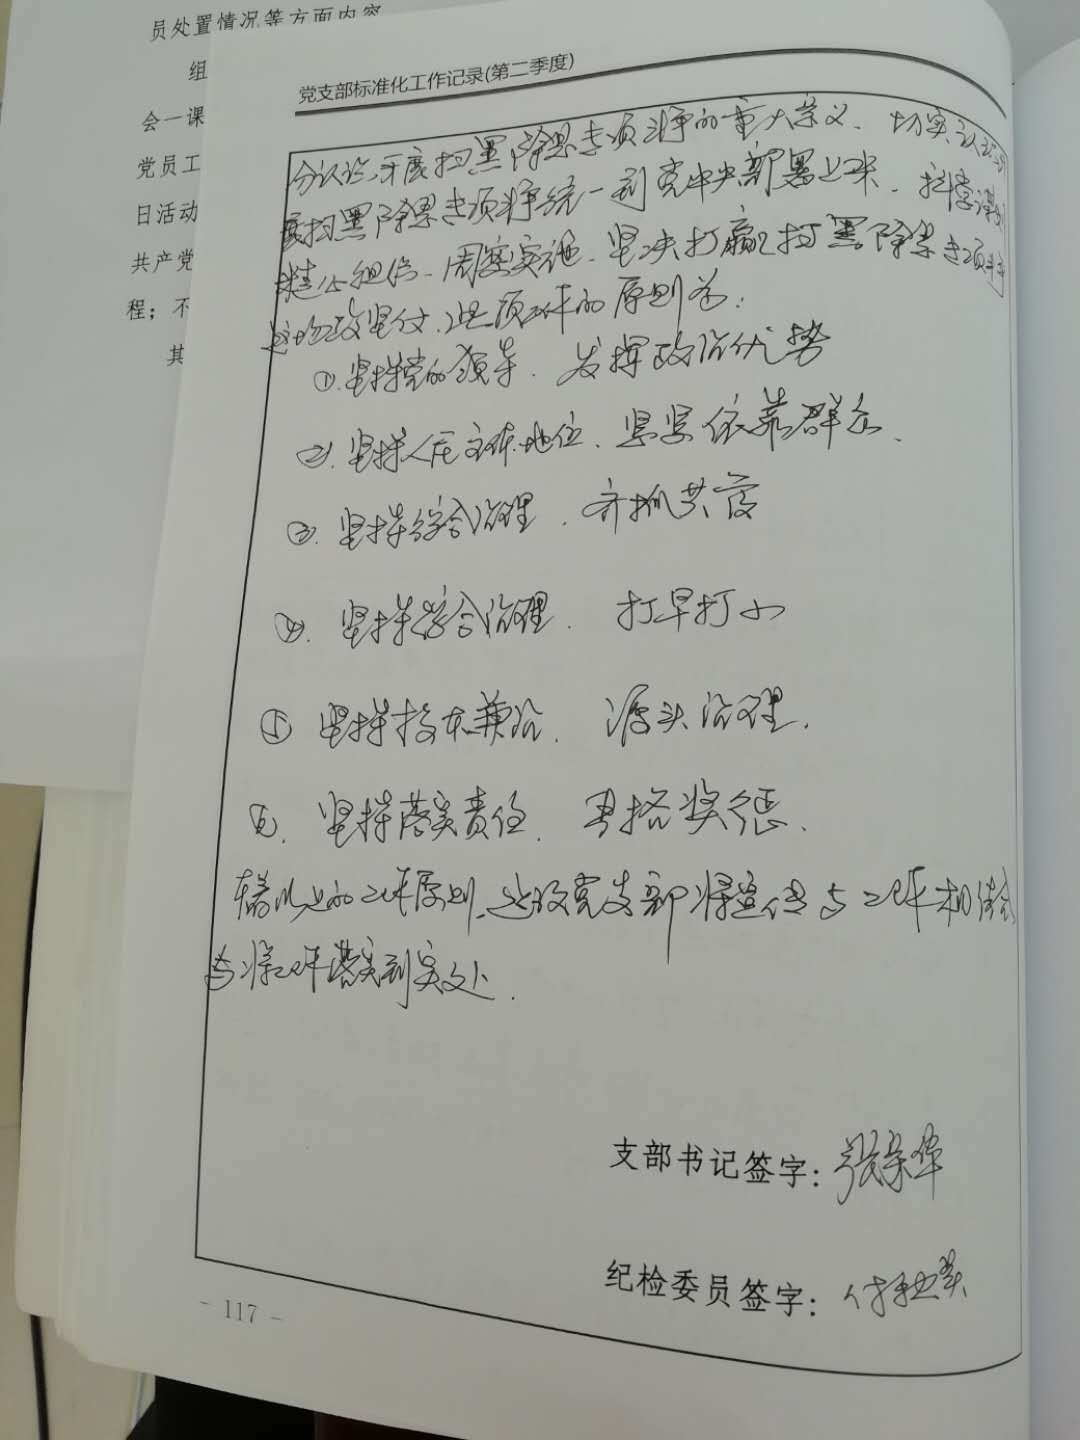 员处置情况等方面内容
组
会一课
党员工
日活动
共产党
程；不
其
党支部标准化工作记录(第二季度)
分认识开展扫黑除恶专项斗争的重大意义、切实认识
展扫黑除恶专项斗争统一到党中央部署上来、科学谋划
精心组织、周密实施、坚决打赢扫黑除恶专项斗争
这场攻坚仗、工作的原则为：
①.坚持党的领导、发挥政治优势
②.坚持人民主体地位、紧紧依靠群众、
③.坚持综合治理、齐抓共管
④.坚持综合治理、打早打小
⑤ 坚持标本兼治、源头治理、
⑥、坚持落实责任、严格奖惩、
以上的工作原则、党支部将宣传与工作相结合
将工作落实到实处、
支部书记签字：
纪检委员签字：
- 117 -